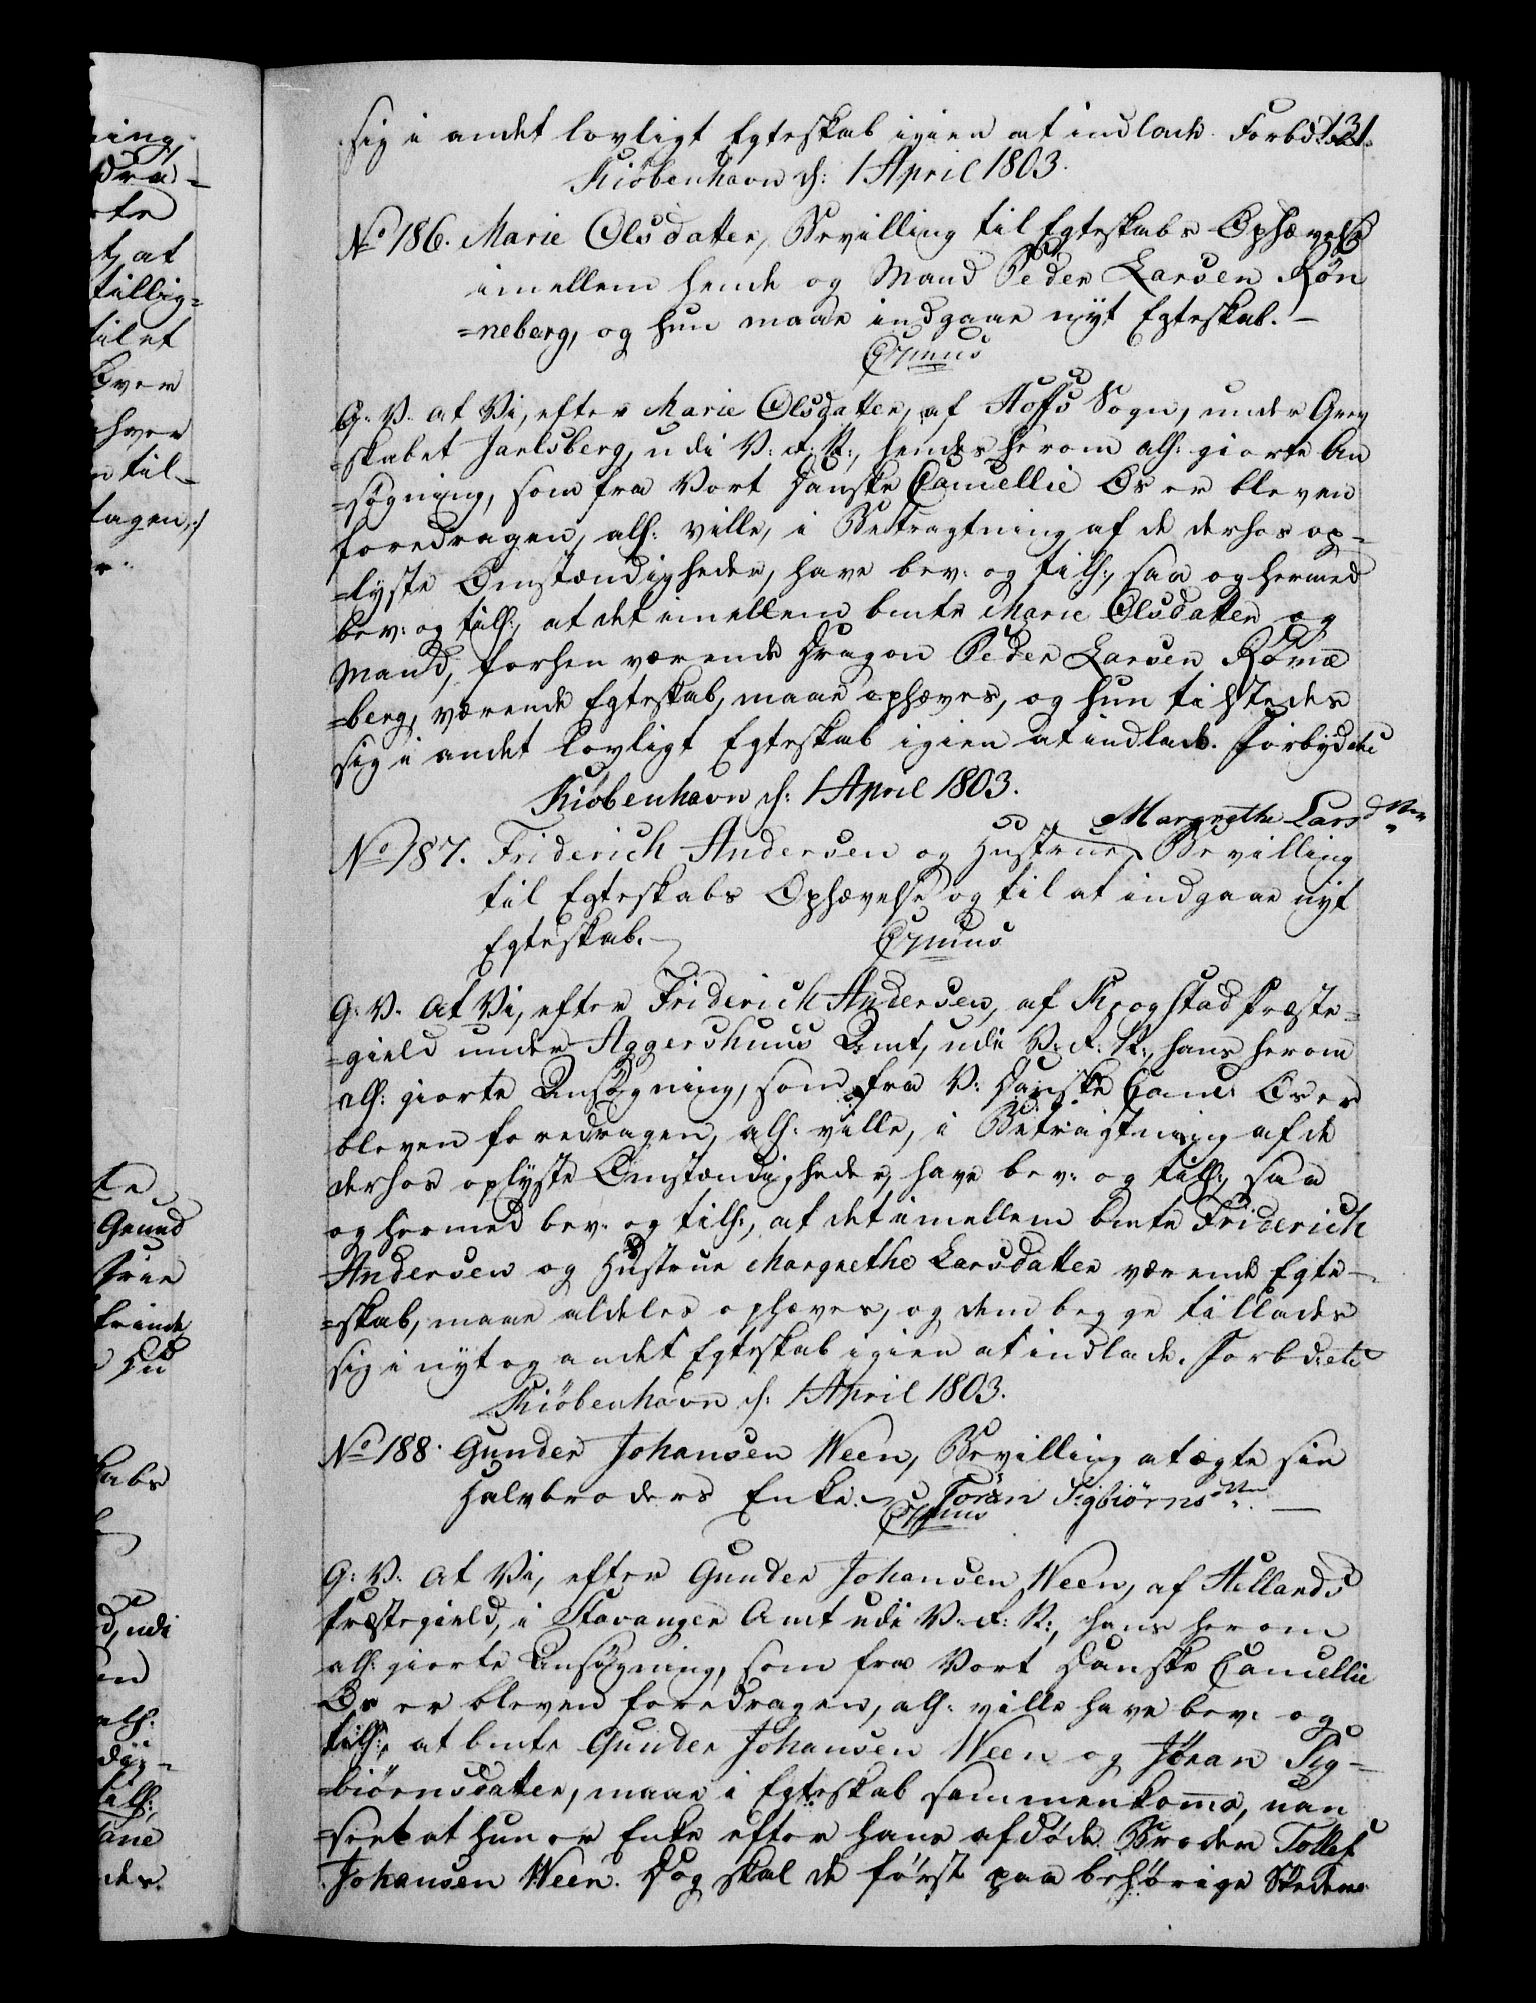 sig i andet lovligt Egteskab igien at indlade. Forbd: 131.
Kiøbenhavn d: 1 April 1803.
No 186. Marie Olsdatter, Bevilling til Egteskabs Ophævelse
imellem hende og Mand Peder Larsen Røn
=neberg, og hun maae indgaae nyt Egteskab. —
G: V. at Vi, efter Marie Olsdatter, af Hoffs Sogn, under Grev
=skabet Jarlsberg, udi V: R: N:, hendes herom alh: giorte An
=søgning, som fra Vort Danske Cancellie Os er bleven
foredragen, alh: ville, i Betragtning af de derhos op=
=lyste Omstændigheder, have bev: og tilh:, saa og hermed
bev: og tilh:, at det imellem bmte Marie Olsdatter og
Mand, forhen værende Dragon Peder Larsen Rønne
=berg, værende Egteskab, maae ophæves, og hun tilstedes
sig i andet lovligt Egteskab igien at indlade. Forbydende
Kiøbenhavn d: 1 April 1803.
Margrethe Larsdtter
No 187. Friderich Andersen og Hustrue, Bevilling
til Egteskabs Ophævelse og til at indgaae nyt
Egteskab.
G: V. At Vi, efter Friderich Andersen, af Krogstad Præste=
=gield under Aggershuus Amt, udi V: R: N:, hans herom
alh: giorte Ansøgning, som fra V: Danske Canc: Os er
bleven foredragen, alh: ville, i Betragtning af de
derhos oplyste Omstændigheder, have bev: og tilh:, saa
og hermed bev: og tilh:, at det imellem bmte Friderich
Andersen og Hustrue Margrethe Larsdatter værende Egte=
=skab, maae aldeles ophæves, og dem begge tillades
sig i nyt og andet Egteskab igien at indlade. Forbd: etc
Kiøbenhavn d: 1 April 1803.
No 188. Gunder Johansen Ween, Bevilling at ægte sin
Halvbroders Enke. Joran Sigbiørnsdtr. —
G: V. At Vi, efter Gunder Johansen Ween, af Hellands
Præstegield, i Stavanger Amt udi V: R: N:, hans herom
alh: giorte Ansøgning, som fra Vort Danske Cancellie
Os er bleven foredragen, alh: ville have bev: og
tilh:, at bmte Gunder Johansen Ween og Jøran Sig=
=biørnsdatter, maae i Egteskab sammenkome, uan
=seet at hun er Enke efter hans afdøde Broder Tollef
Johansen Ween. Dog skal de først paa behørige Stæder